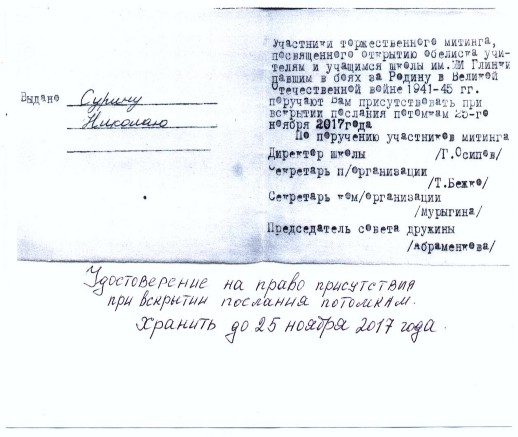 Выдано Сурину
Николаю
Участники торжественного митинга,
посвященного открытию обелиска учи-
телям и учащимся школы им. МИ Глинки
павшим в боях за Родину в Великой
Отечественной войне 1941-45 гг.
поручают Вам присутствовать при
вскрытии послания потомкам 25-го
ноября 2017года
По поручению участников митинга
Директор школы /Г.Осипов/
Секретарь п/организации
/Т.Бежко/
Секретарь ком/организации
/мурыгина/
Председатель совета дружины
/абраменкова/
Удостоверение на право присутствия
при вскрытии послания потомкам.
Хранить до 25 ноября 2017 года.